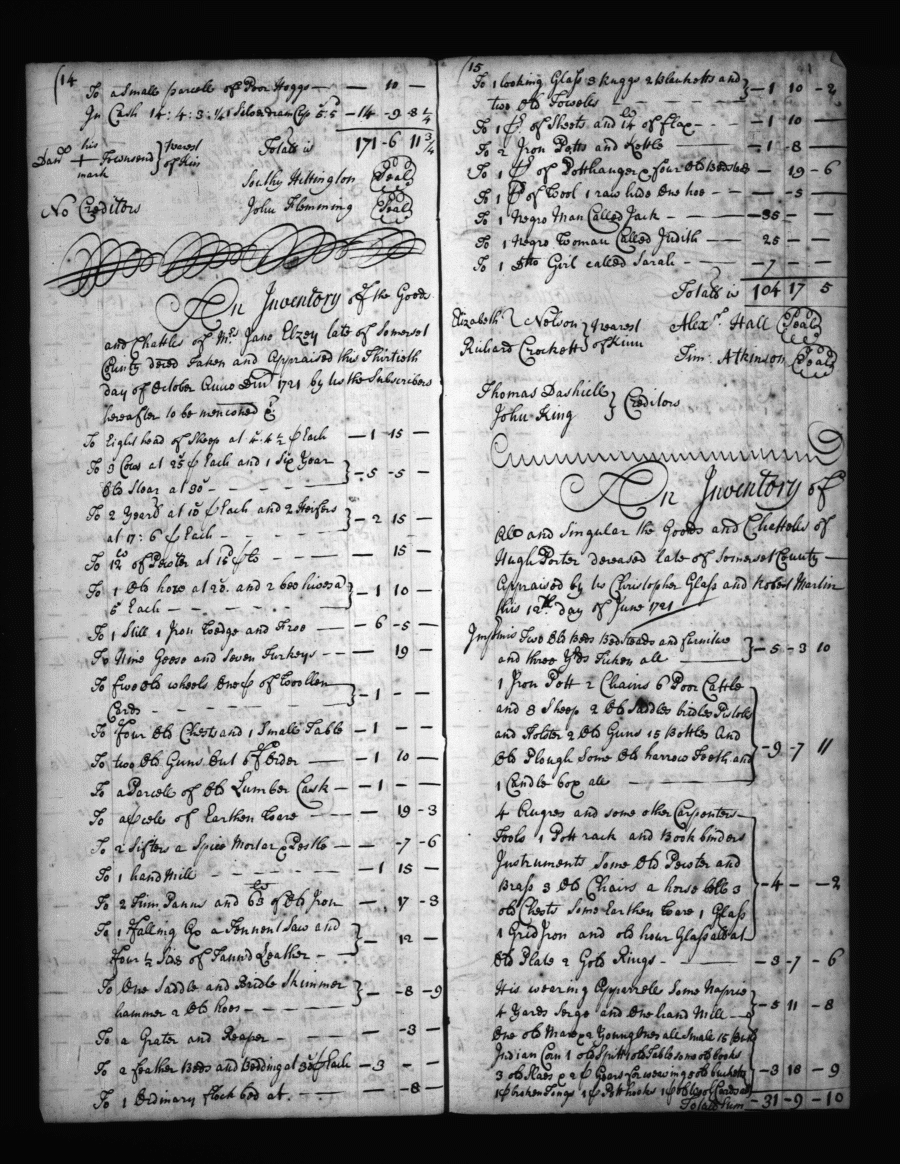 (14
To a Small parcele of Poor Hoggs — 10 —
In Cash 14:4:3:¼ 1 Silver dram Cup 5:5 — 14 - 9 - 8 ¼
Totall is 171 - 6 11 ¾
his
Dan + Townsend } nearest of Kin
mark
Southy Hittington Seal
No Creditors John Flemming Seal
An Inventory of the Goods
and Chattles of Mrs. Jane Elzey late of Somerset
County deced Taken and Appraised this Thirtieth
day of October Anno Dni 1721 by us the Subscribers
hereafter to be menconed
To Eight head of Sheep at 4:4½ Each — 1 15 —
To 3 Cows at 25 Each and 1 Six Year
Old Stear at 30 — 5 - 5 —
To 2 Yeard at 10 Each and 2 Heifers
at 17:6 Each — 2 15 —
To 12 lb of Pewter at 15 — 15 —
To 1 Old horse at 20 and 2 bee hives a
5 Each — 1 10 —
To 1 Still 1 Iron Wedge and Froe — 6 - 5 —
To Nine Geese and Seven Turkeys — 19 —
To two Old wheels One of Woollen
Cards — 1 — —
To four Old Chests and 1 Small Table — 1 — —
To two Old Guns but of Order — 1 10 —
To a Parcele of Old Lumber Cask — 1 — —
To a pcele of Earthen Ware — 19 - 3
To 2 Sifters a Spice Mortar & Pestle — 7 - 6
To 1 hand Mill — 1 15 —
To 2 Tinn Panns and 63 lb of Old Iron — 17 - 3
To 1 falling Ax a Tennent Saw and
four ½ Sides of Tann'd Leather — 12 —
To One Saddle and Bridle Skimmer
hammer 2 Old hoes — 8 - 9
To a Grater and Reaper — 3 —
To 2 feather Beds and Bedding at 30 Each — 3 — —
To 1 Ordinary flock bed at — 8 —
(15
To 1 looking Glass 3 Ruggs 2 Blanketts and
two Old Towells — 1 10 - 2
To 1 pr of Sheets and 14 lb of flax — 1 10 —
To 2 Iron Potts and Kettle — 1 - 8 —
To 1 pr of Potthangers & four Old Bedsteds — 19 - 6
To 1 P of Wool 1 raw hide One hoe — 5 —
To 1 Negro Man Called Jack — 35 — —
To 1 Negro Woman Called Judith — 25 — —
To 1 Ditto Girl called Sarah — 7 — —
Totall is 104 17 5
Elizabeth Nelson } nearest Alexr. Hall Seal
Richard Crockett } of Kinn Tim: Atkinson Seal
Thomas Dashiell
John King } Creditors
An Inventory of
All and Singular the Goods and Chattells of
Hugh Porter deceased late of Somerset County
Appraised by Us Christopher Glass and Robert Martin
this 12th day of June 1721
Imprimis Two Old Beds Bedsteads and furniture
and three Yds Ticken all — 5 - 3 10
1 Iron Pott 2 Chains 6 Poor Cattle
and 8 Sheep 2 Old Saddles bridles Pistols
and Holster 2 Old Guns 15 Bottles And
Old Plough Some Old harrow Teeth and
1 Candle box all — 9 - 7 11
4 Augres and some other Carpenters
Tools 1 Pott rack and Book binders
Instruments Some Old Pewter and
Brass 3 Old Chairs a horse bell 3
old Chests Some Earthen Ware 1 Glass
1 Grid Iron and old hour Glass all at — 4 - — 2
Old Plate 2 Gold Rings — 3 - 7 - 6
His wearing Apparrele Some Naprie
4 Yards Serge and One hand Mill — 5 11 - 8
One old Mare & 2 Young Ones all Small 15
Indian Corn 1 old Spitt old Table some old books
3 old Rasps & 2 Gears for weaving old buckets
1 broken Tongs 1 pr Potthooks — 3 16 - 9
Totall Sum — 31 - 9 - 10